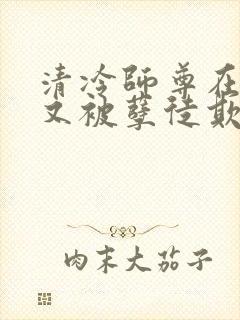 清冷师尊在
又被孽徒欺
肉末大茄子